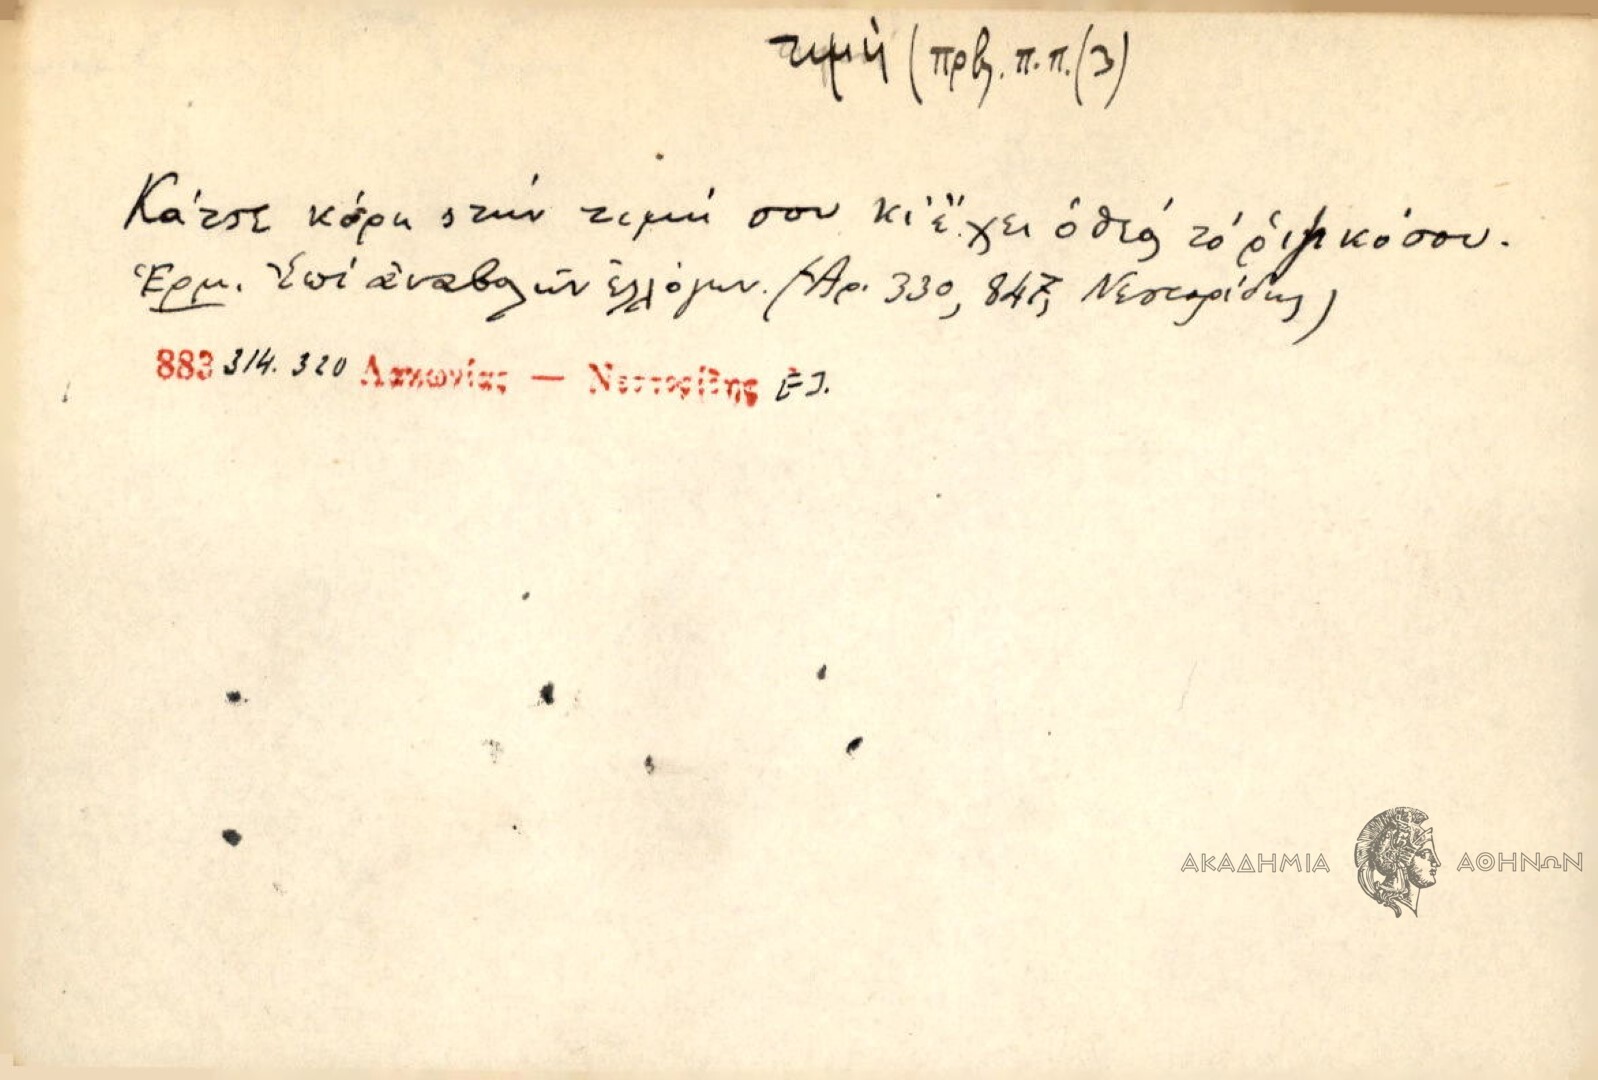 τιμή (πρβλ. π.π. (3)
Κάτσε κόρη στήν τιμή σου κι' ἔχει ὁ θεός τό ριζικό σου.
Ἑρμ. Ἐπί ἀναβολῶν ἐλλόγων. (Ἀρ. 330, 847, Νεστορίδης)
883 314. 320 Λακωνίας — Νεστορίδης Ε
ΑΚΑΔΗΜΙΑ ΑΘΗΝΩΝ